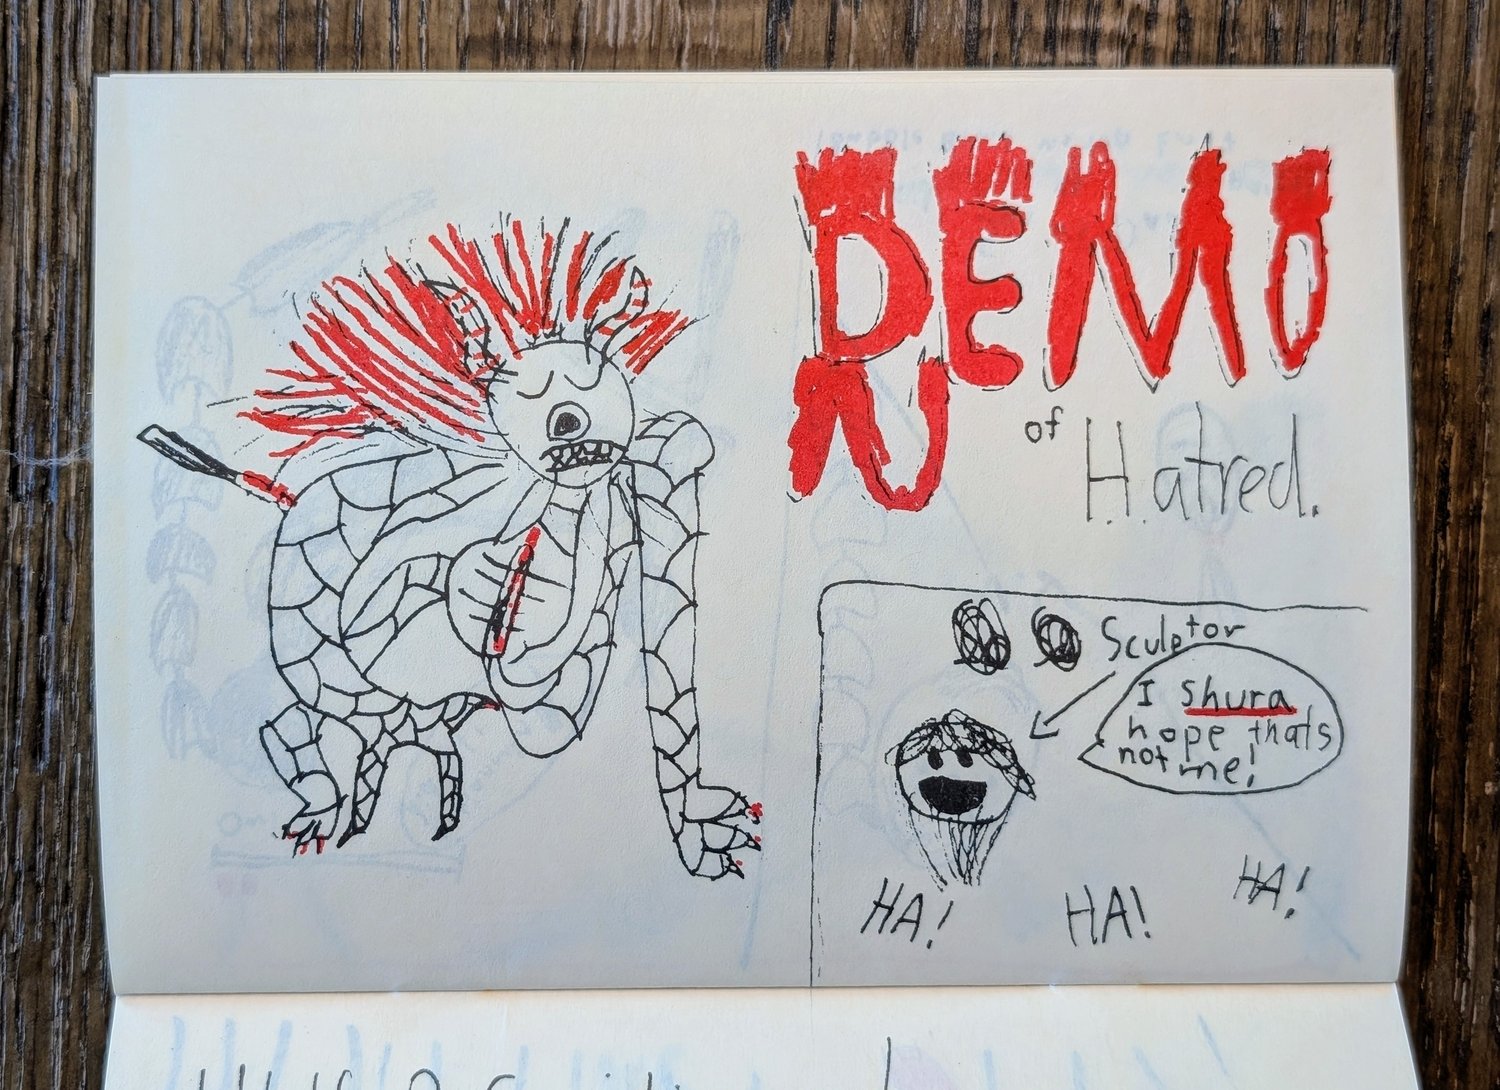 DEMO
N
of
Hatred.
Sculptor
I shura
hope thats
not me!
HA!
HA!
HA!